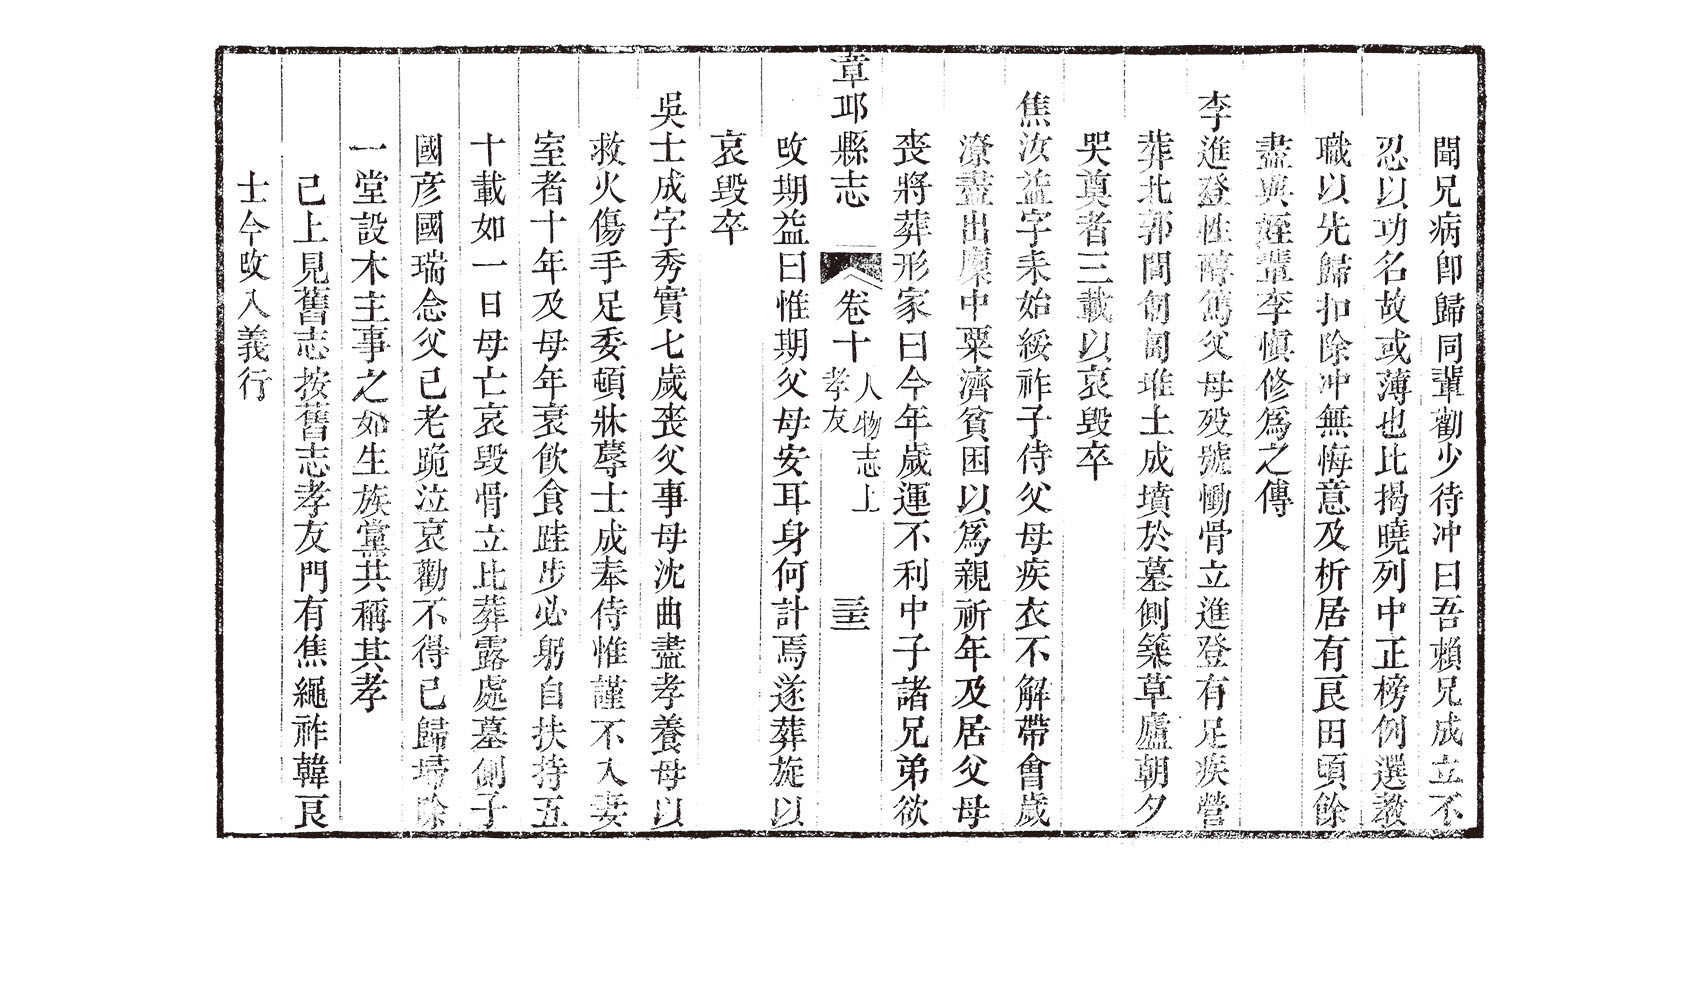 聞兄病卽歸同輩勸少待冲曰吾賴兄成立不
忍以功名故或薄也比揭曉列中正榜例選敎
職以先歸扣除冲無悔意及析居有良田頃餘
盡與姪輩李愼修爲之傳
李進登性醇篤父母歿號慟骨立進登有足疾營
葬北郭間匍匐堆土成墳於墓側築草廬朝夕
哭奠者三載以哀毀卒
焦汝益字耒始綏祚子侍父母疾衣不解帶會歲
潦盡出廩中粟濟貧困以爲親祈年及居父母
喪將葬形家曰今年歲運不利中子諸兄弟欲
章邱縣志 卷十 人物志上 孝友 三十三
改期益曰惟期父母安耳身何計焉遂葬旋以
哀毀卒
吳士成字秀實七歲喪父事母沈曲盡孝養母以
救火傷手足委頓牀蓐士成奉侍惟謹不入妻
室者十年及母年衰飮食跬步必躬自扶持五
十載如一日母亡哀毀骨立比葬露處墓側子
國彦國瑞念父已老跪泣哀勸不得已歸埽除
一堂設木主事之如生族黨共稱其孝
已上見舊志按舊志孝友門有焦繩祚韓良
士今改入義行